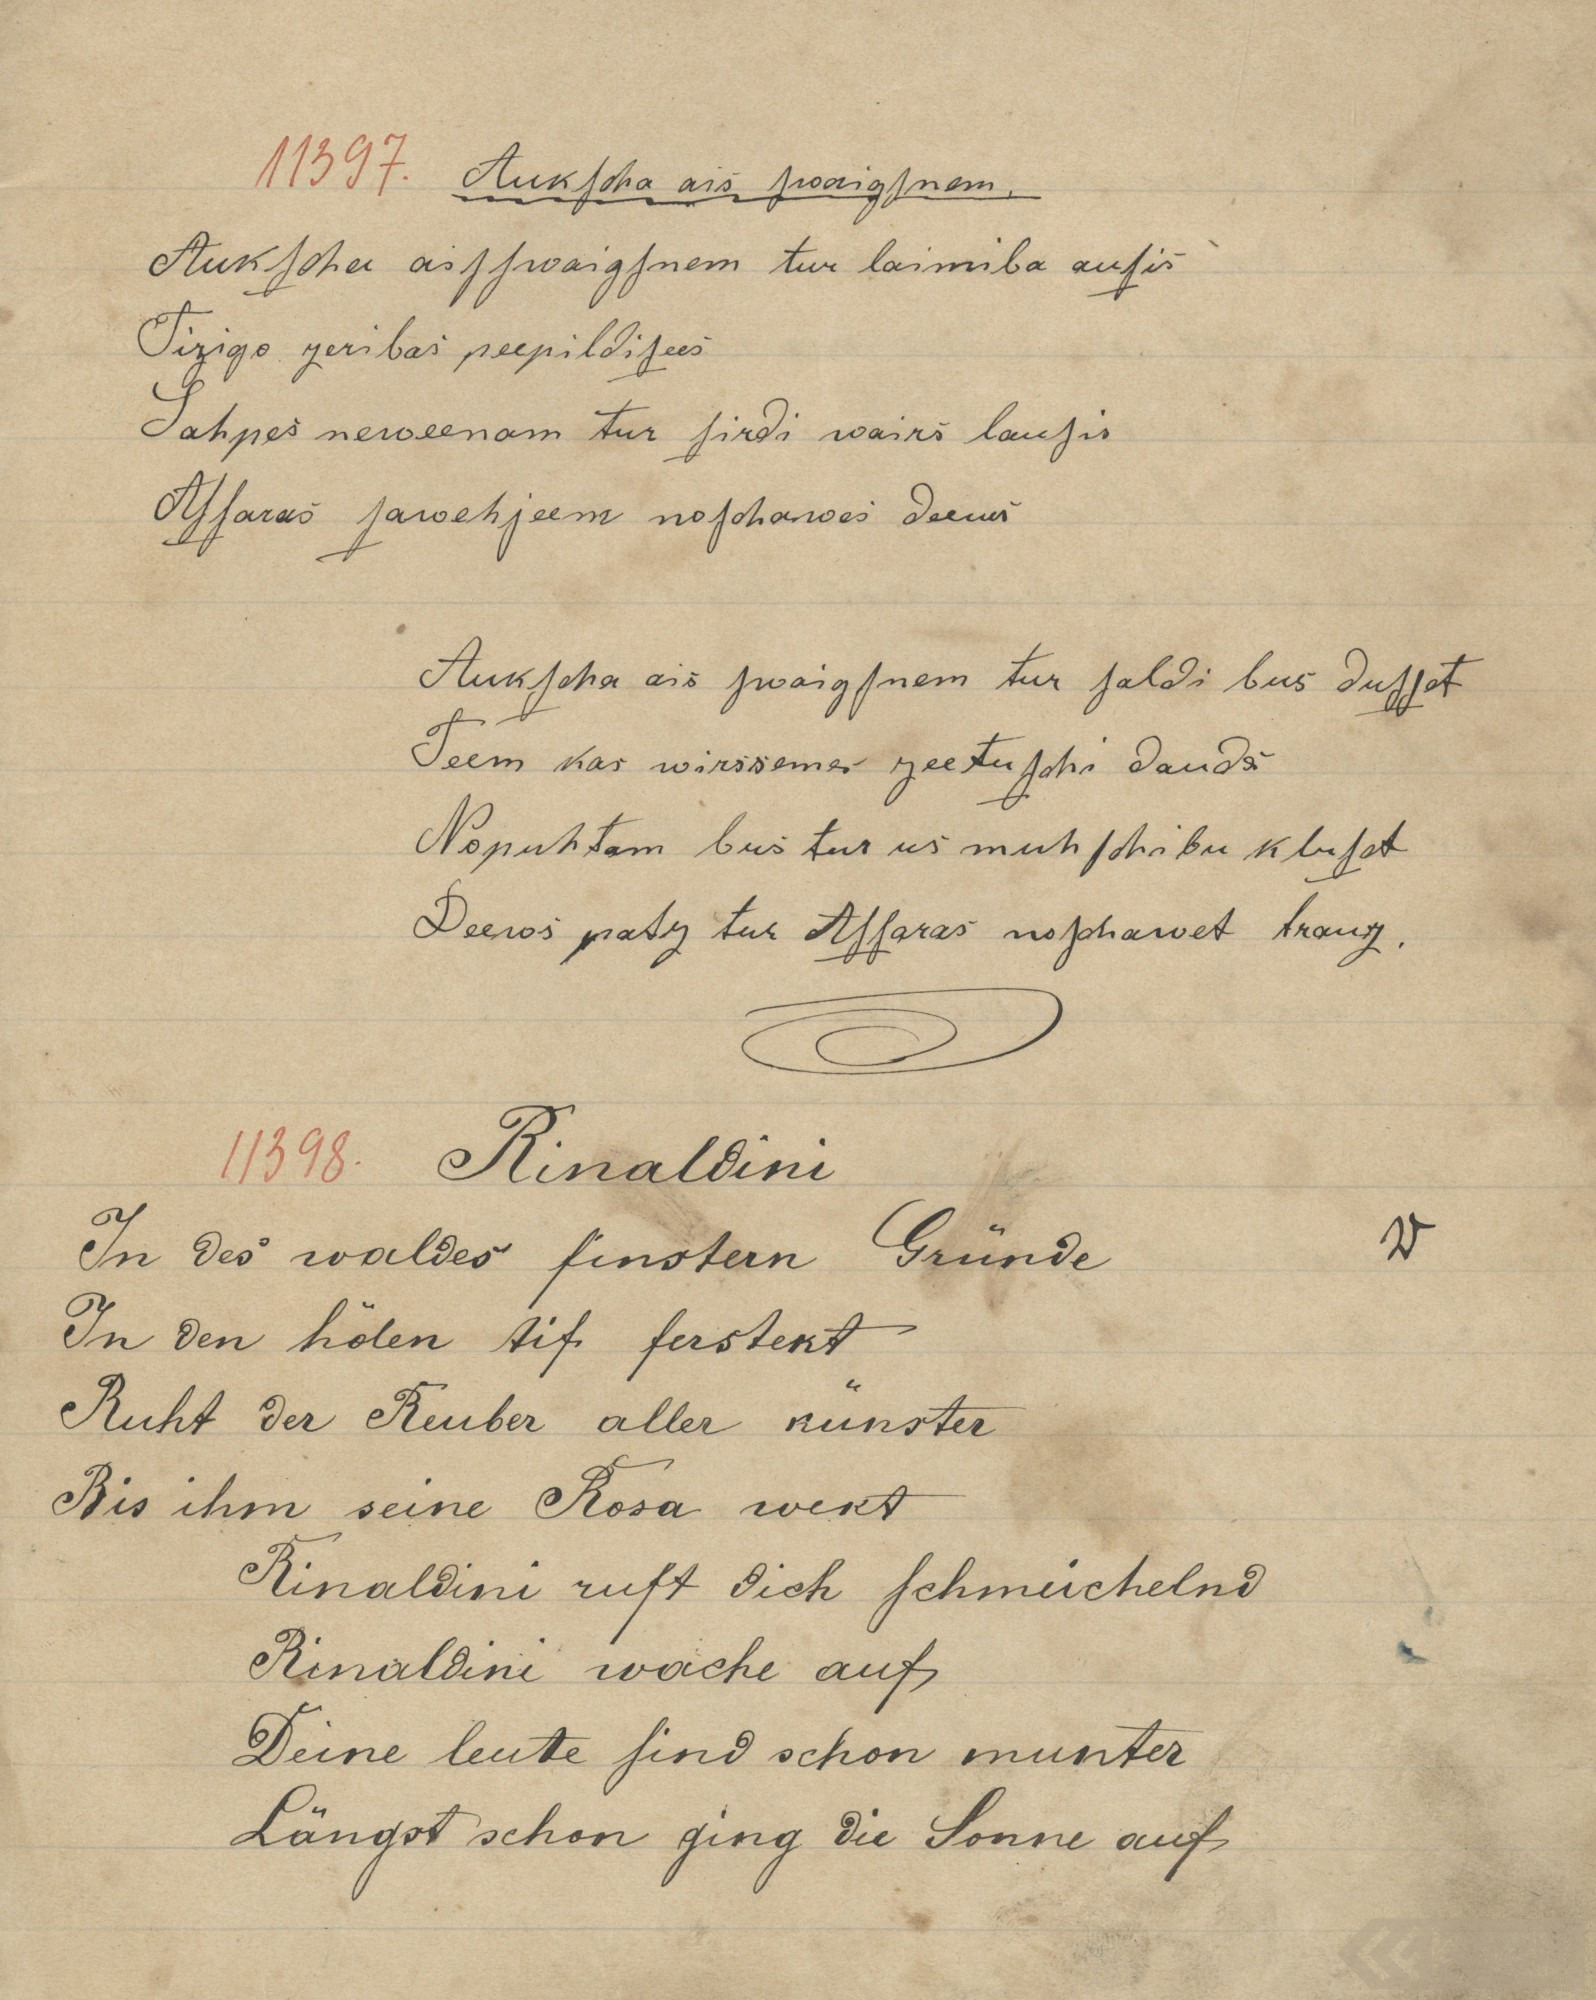 11397. Aukſcha ais ſwaigſnem.
Aukſcha aisſſwaigſnem tur laimiba auſis
Tizigo zeribas peepildiſees
Sahpes neweenam tur ſirdi wairs lauſis
Aſſaras ſawehjeem noſchawes deews
Aukſcha ais ſwaigſnem tur ſaldi bus duſſet
Teem kas wirssemes zeetuſchi dauds
Nopuhtam bus tur us muhſchibu kluſet
Deews patz tur Aſſaras noſchawet trauz.
11398. Rinaldini
In des waldes finstern Gründe
In den hölen tif ferstekt
Ruht der Reuber aller künster
Bis ihm seine Rosa wekt
Rinaldini ruft dich ſchmeichelnd
Rinaldini wache auf
Deine leute ſind schon munter
Längst schon ging die Sonne auf